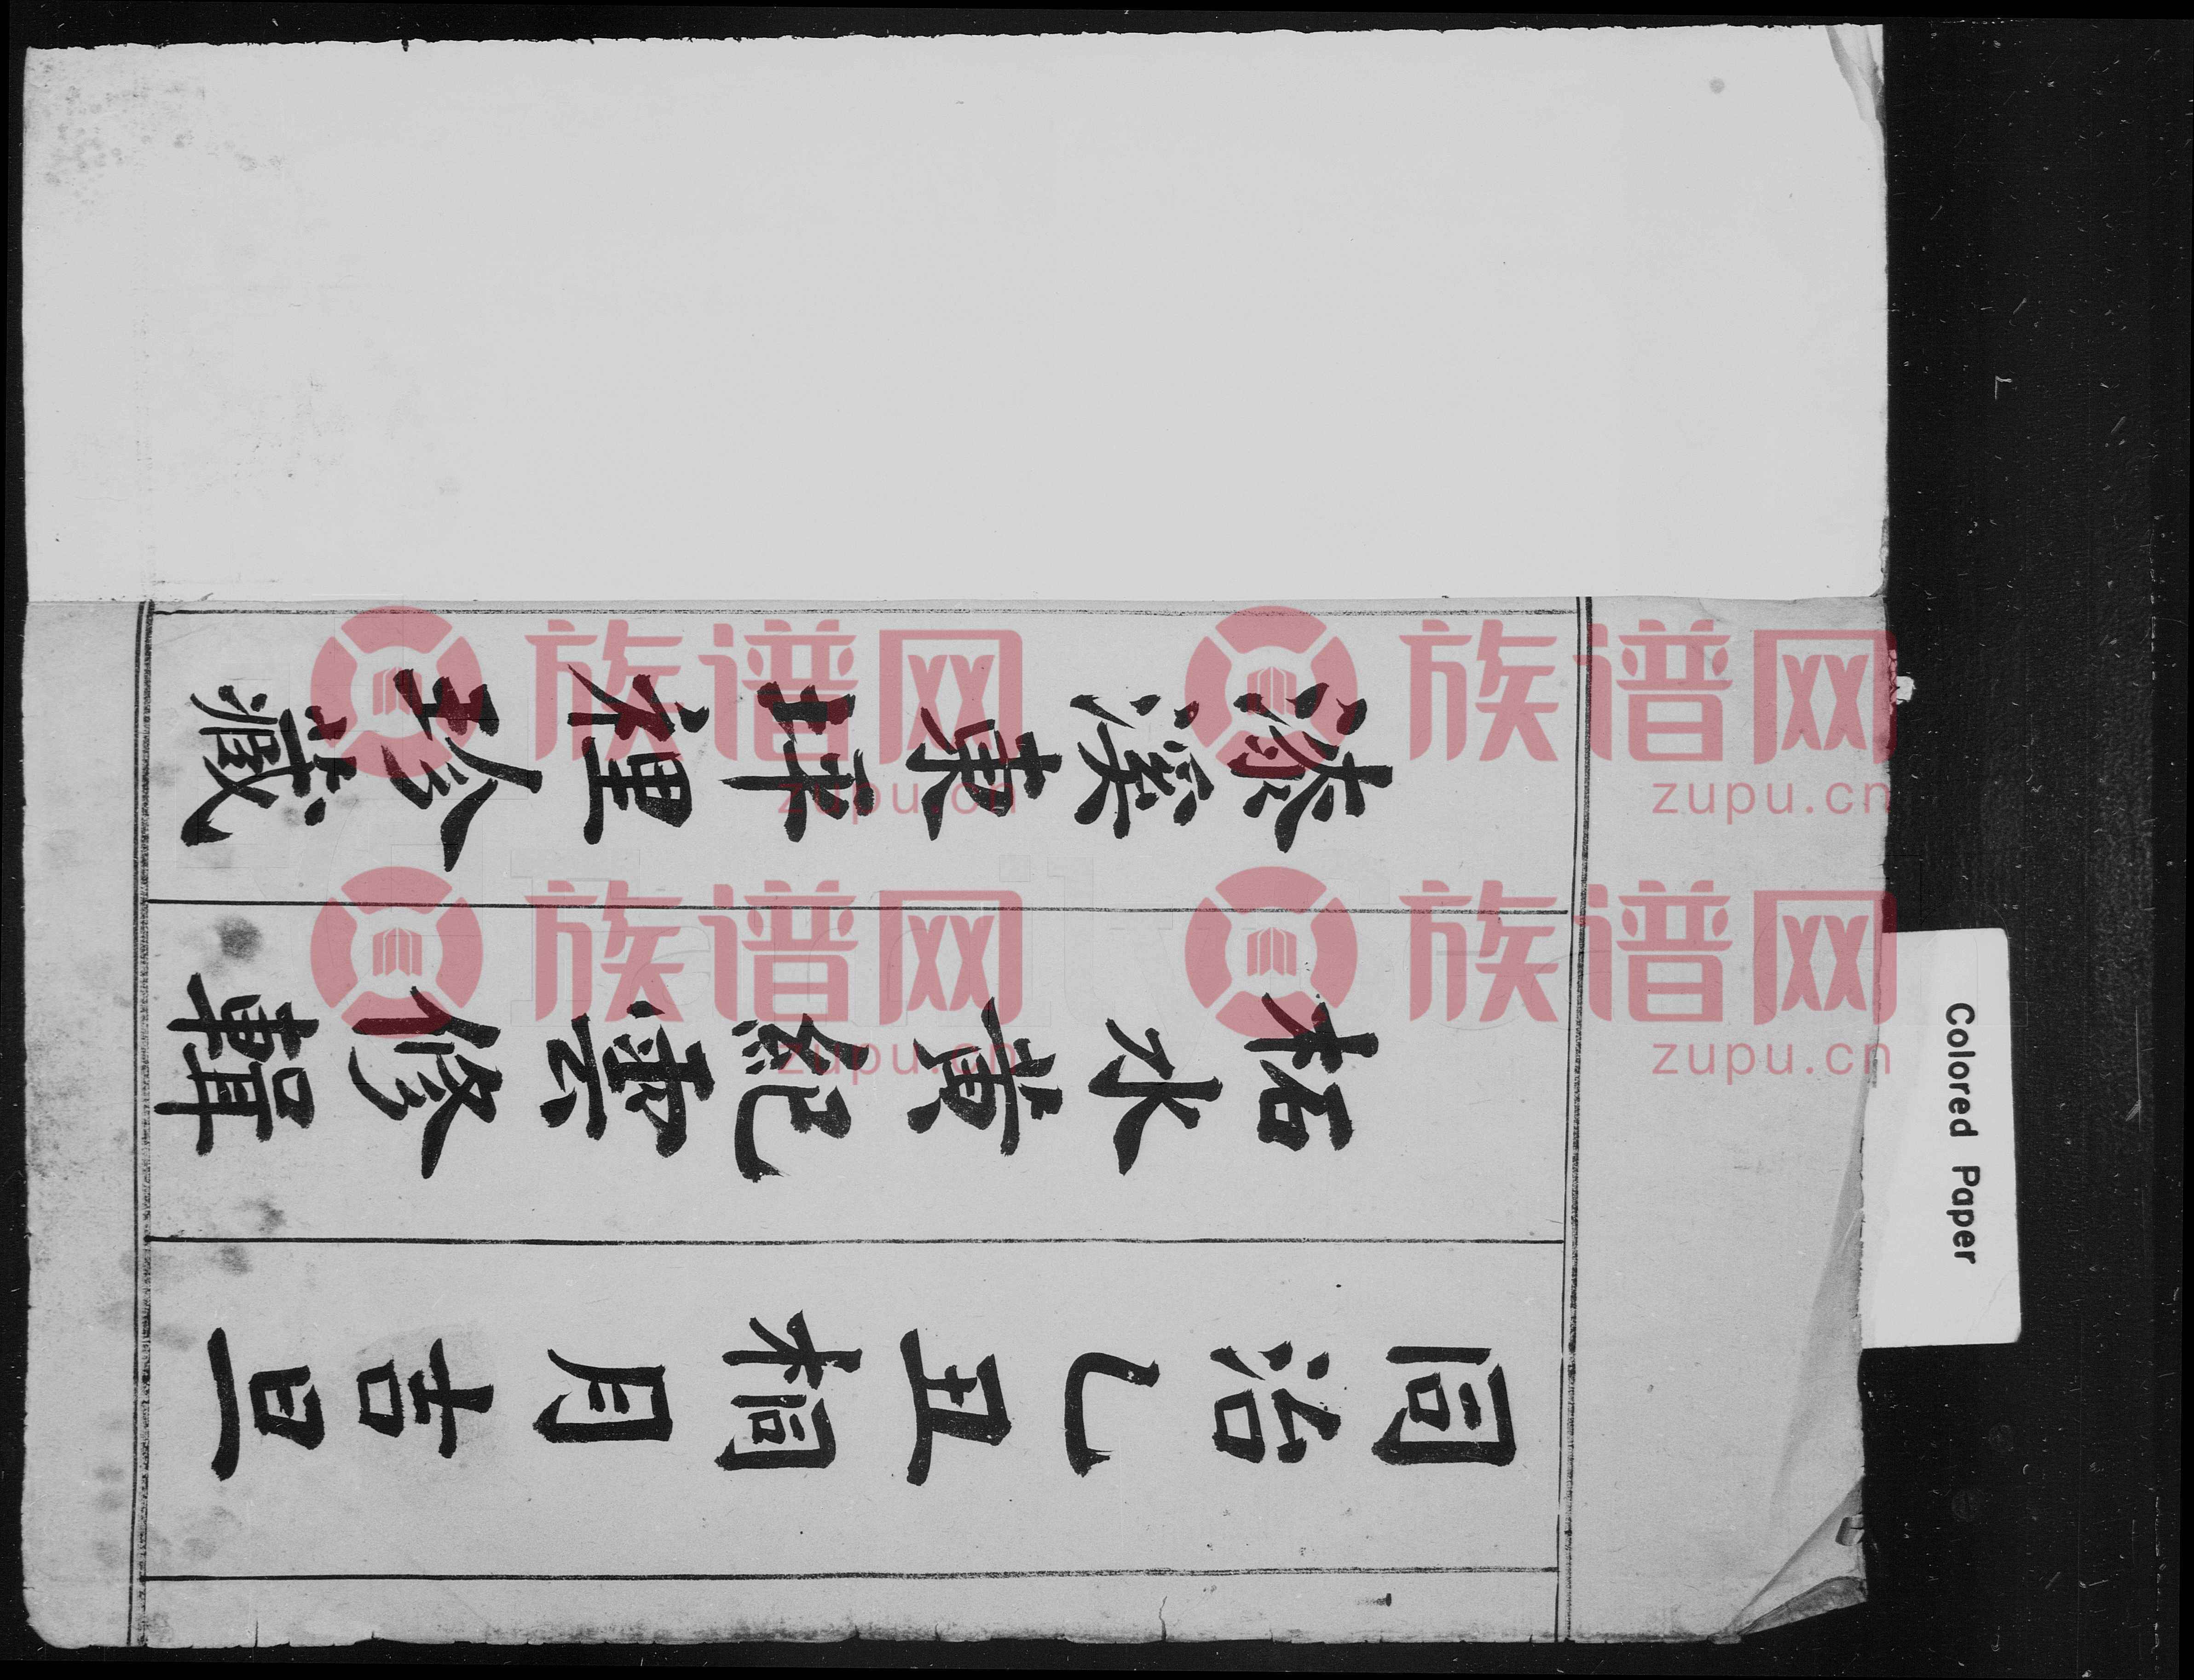 同治乙丑桐月吉旦
柘水黃紀雲修輯
漆溪東坪裡珍藏
Colored Paper
族谱网
zupu.cn
族谱网
zupu.cn
族谱网
zupu.cn
族谱网
zupu.cn